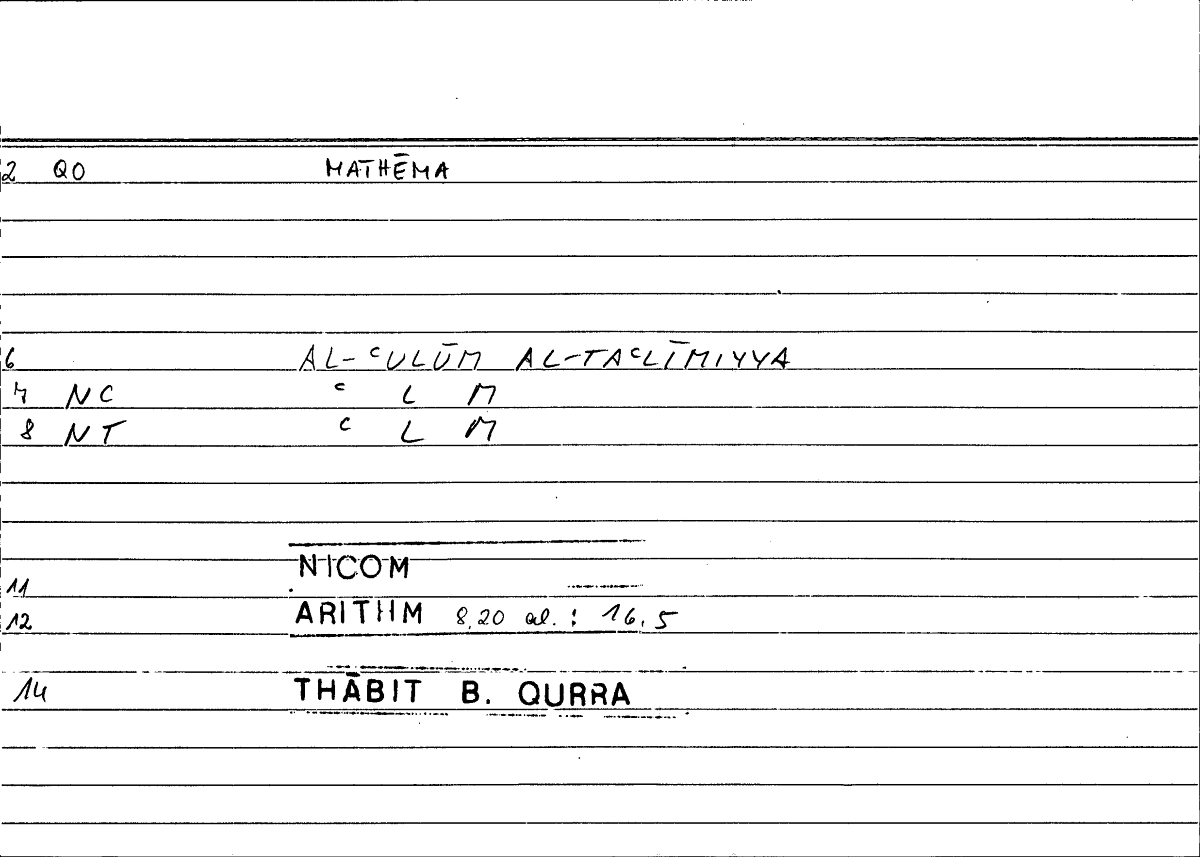 2 QO MATHĒMA
6 AL-ᶜULŪM AL-TAᶜLĪMIYYA
7 NC ᶜ L M
8 NT ᶜ L M
11 NICOM
12 ARITHM 8,20 al. : 16,5
14 THĀBIT B. QURRA